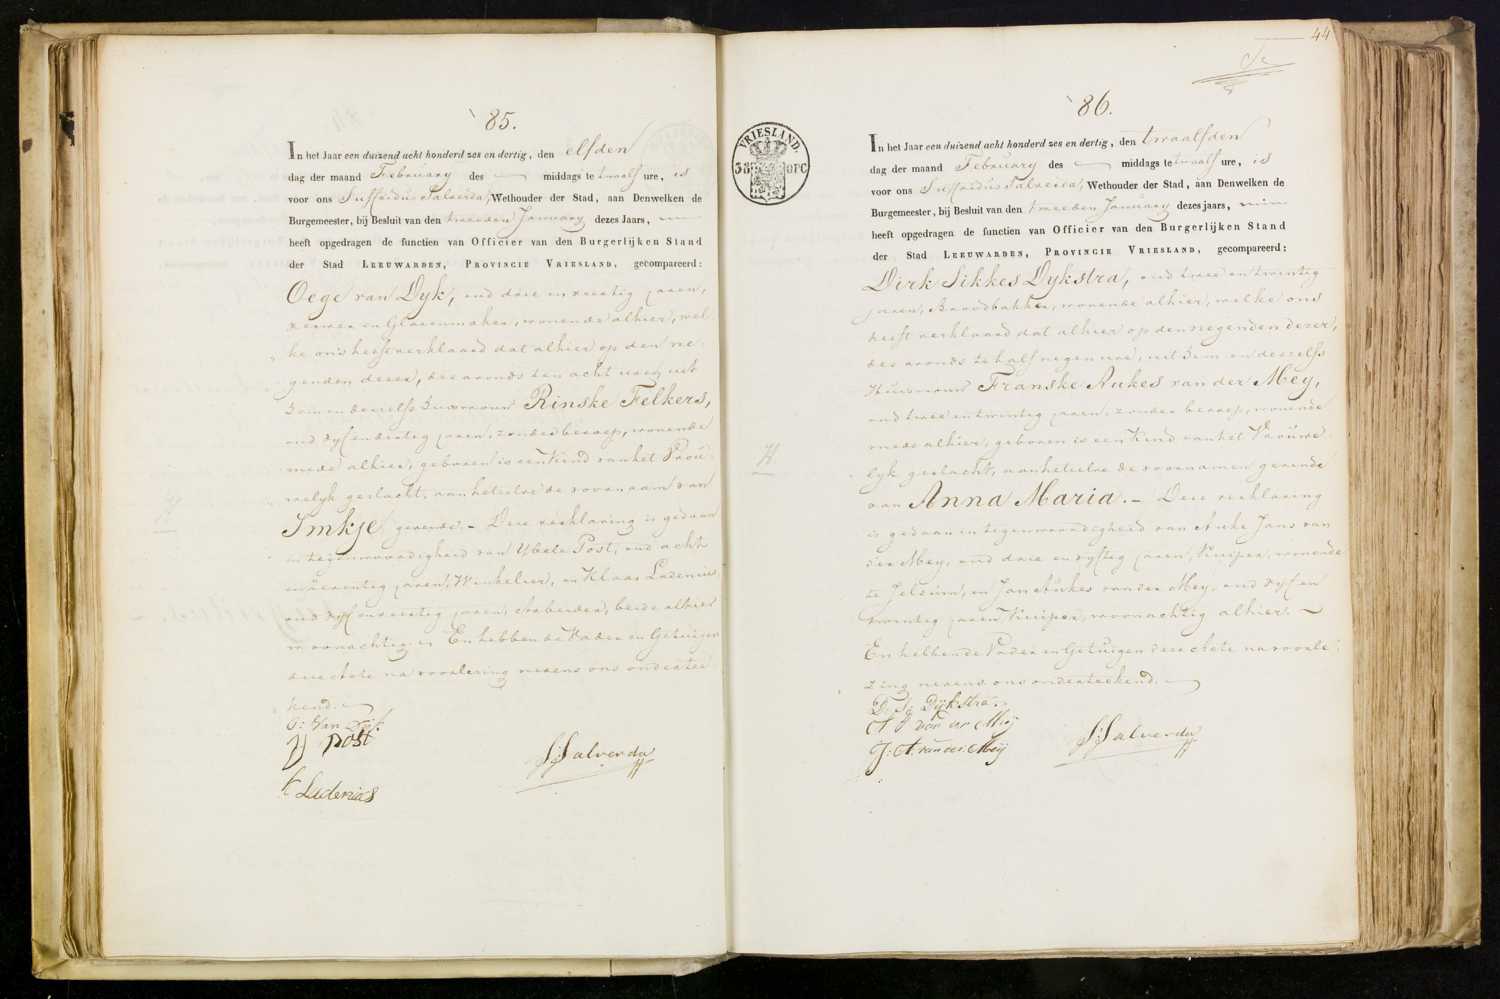 85.
In het Jaar een duizend acht honderd zes en dertig, den elfden
dag der maand February des — middags te twaalf ure, is
voor ons Suffridus Salverda, Wethouder der Stad, aan Denwelken de
Burgemeester, bij Besluit van den tweeden January dezes Jaars,
heeft opgedragen de functien van Officier van den Burgerlijken Stand
der Stad LEEUWARDEN, PROVINCIE VRIESLAND, gecompareerd:
Oege van Dyk, oud drie en veertig jaren,
Verwer en Glazenmaker, wonende alhier, wel-
ke ons heeft verklaard dat alhier op den ne-
genden dezer, des avonds ten acht ure, uit
hem en deszelfs Huisvrouw Rinske Felkers,
oud vyf en dertig jaren, zonder beroep, wonende
mede alhier, geboren is een Kind van het Vrou-
welyk geslacht, aan hetwelke de voornaam van
Imkje gevende. – Deze verklaring is gedaan
in tegenwoordigheid van Ybele Post, oud acht
en veertig jaren, Winkelier, en Klaas Ladenius,
oud vyf en veertig jaren, Arbeider, beide alhier
woonachtig. En hebben de Vader en Getuigen
deze Acte na voorlezing nevens ons onderteekend.
O: Van Dijk
Y post
K Ladenius
S: Salverda
44
86.
VRIESLAND.
38 OPC
In het Jaar een duizend acht honderd zes en dertig, den twaalfden
dag der maand February des — middags te twaalf ure, is
voor ons Suffridus Salverda, Wethouder der Stad, aan Denwelken de
Burgemeester, bij Besluit van den tweeden January dezes jaars,
heeft opgedragen de functien van Officier van den Burgerlijken Stand
der Stad LEEUWARDEN, PROVINCIE VRIESLAND, gecompareerd:
Dirk Sikkes Dykstra, oud twee en twintig
jaren, Broodbakker, wonende alhier, welke ons
heeft verklaard dat alhier op den negenden dezer,
des avonds te half negen ure, uit hem en deszelfs
Huisvrouw Franske Aukes van der Mey,
oud twee en twintig jaren, zonder beroep, wonende
mede alhier, geboren is een Kind van het Vrouwe-
lyk geslacht, aan hetwelke de voornamen gevende
van Anna Maria. – Deze verklaring
is gedaan in tegenwoordigheid van Auke Jans van
der Mey, oud drie en vyftig jaren, Kuiper, wonende
te Jelsum, en Jan Aukes van der Mey, oud vyf en
twintig jaren, Kuiper, woonachtig alhier. –
En hebben de Vader en Getuigen deze Acte na voorle-
zing nevens ons onderteekend.
D. S. Dijkstra.
A J van der Meij
J: A. van der Meij
S: Salverda